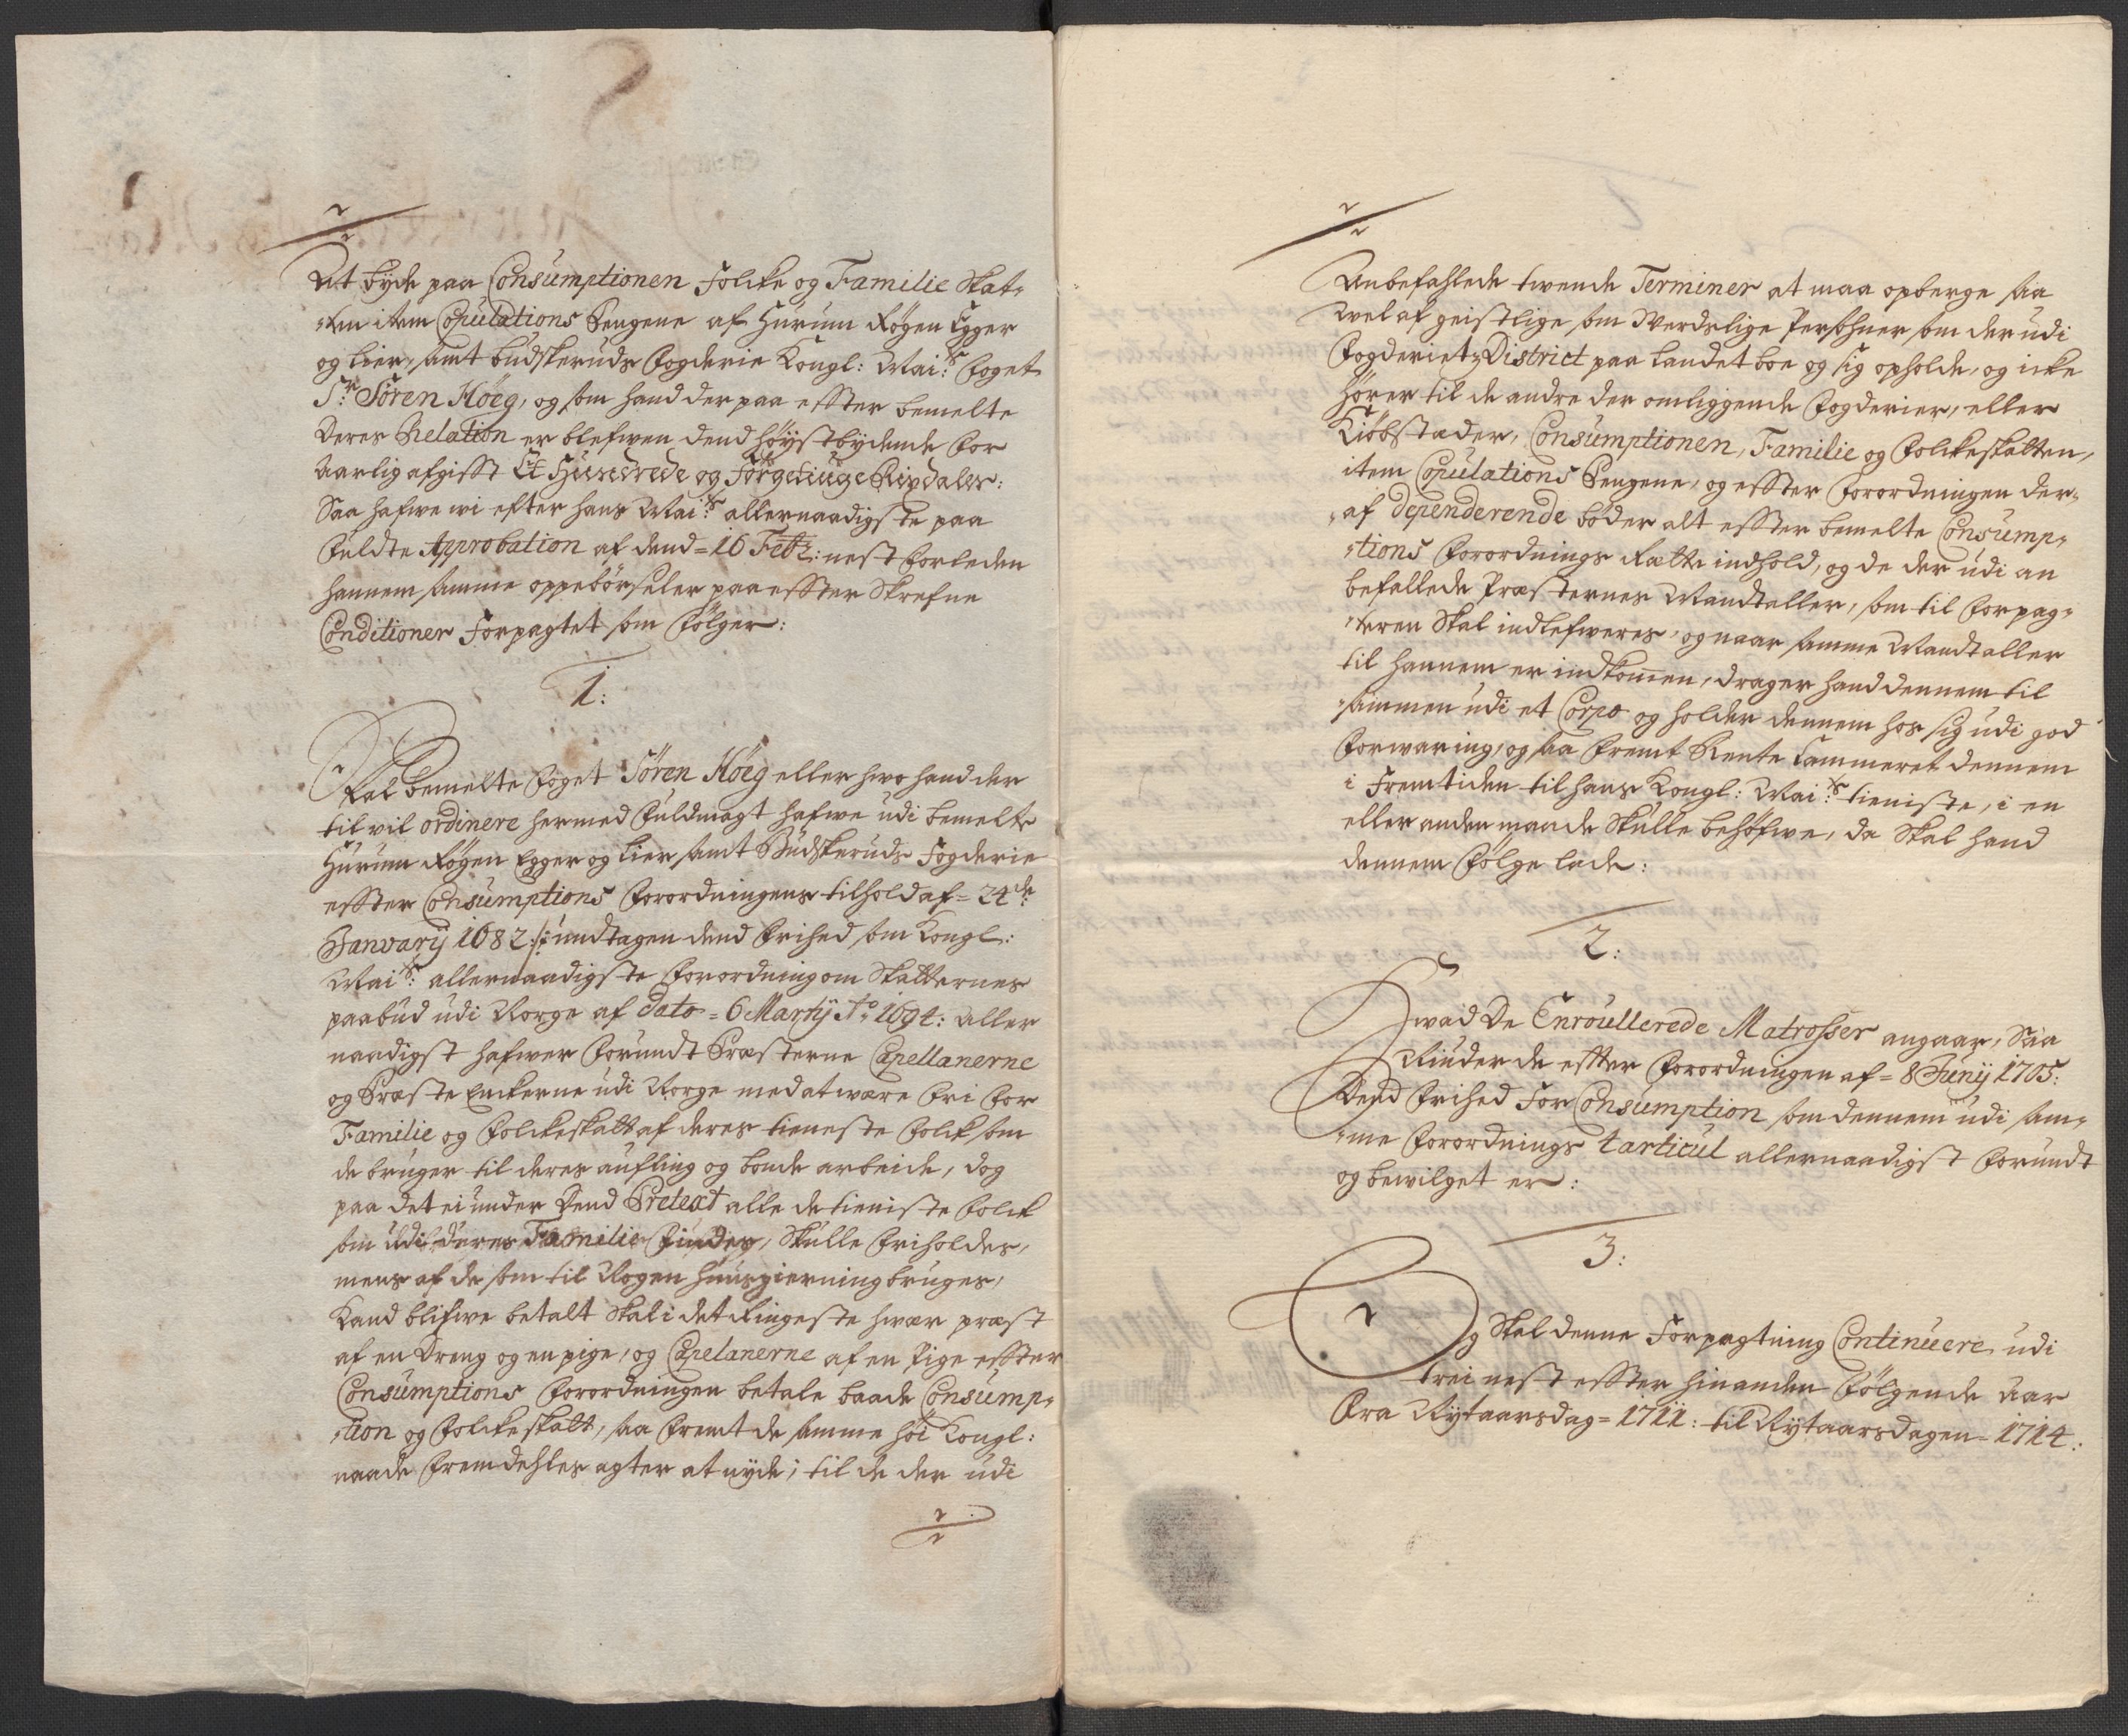 At byde paa Consumptionen Folcke og Familie Skat-
-ten item Copulations Pengene af Hurum Røgen Egger
og Lier, samt Budskeruds Fogderie Kongl: Mai:ts Foget
Sr: Sören Höeg, og som hand der paa effter bemelte
Deres Relation er blefwen dend höystbydende for
Aarlig afgifft Et Hundrede og Förgetiuge Rixdaler:
Saa hafwe wi efter hans Mai:ts allernaadigste paa
fuldte Approbation af dend = 16 Febr: nest forleden
hannem samme oppebörseler paa effter Skrefne
Conditioner Forpagtet som fölger:
1:
Skal bemelte Foget Sören Höeg eller hwo hand der
til vil ordinere hermed fuldmagt hafwe udi bemelte
Hurum Røgen Egger og Lier samt Budskeruds Fogderie
effter Consumptions Forordningens tilhold af = 24de
January 1682 :/: undtagen dend frihed som Kongl:
Mai:ts allernaadigste Forordning om Skatternes
paabud udi Norge af dato = 6 Martÿ Ao 1694: aller
naadigst hafwer forundt Præsterne Capellanerne
og Præste Enckerne udi Norge med at være fri for
Familie og Folckeskatt af deres tieneste folck som
de bruger til deres aufling og bonde arbeide, dog
paa det ei under dend Pretext alle de tieniste folck
som udi deres Familie findes, Skulle friholdes,
mens af de som til Nogen huusgierning bruges,
Kand blifwe betalt Skal i det Ringeste hwær præst
af en Dreng og en pige, og Capelanerne af en Pige effter
Consumptions Forordningen betale baade Consump-
-tion og Folckeskatt, saa fremt de samme höi Kongl:
naade fremdehles agter at nyde; til de der udi
Anbefahlede twende Terminer at maa opberge saa
wel af geistlige som Werdslige Persohner som der udi
Fogderiets District paa Landet boe og sig opholde, og icke
hörer til de andre der omliggende Fogderier, eller
Kiöbstæder, Consumptionen, Familie og Folckeskatten,
item Copulations Pengene, og effter Forordningen der-
-af dependerende böder alt effter bemelte Consump-
-tions Forordnings Rætte indhold, og de der udi an
befallede Præsternes Mandtaller, som til Forpag-
-teren Skal indlefweres, og naar samme Mandtaller
til hannem er indkommen, drager hand dennem til
sammen udi et Corpo og holder dennem hos sig udi god
Forwaring, og saa fremt Rente Cammeret dennem
i Fremtiden til hans Kongl: Mai:ts tieniste, i en
eller anden maade Skulle behöfwe, da Skal hand
dennem fölge lade:
2:
Hwad De Enroullerede Matrosser angaar, Saa
Niuder de effter Forordningen af = 8 Junÿ 1705:
Dend frihed for Consumption som dennem udi sam-
-me Forordnings 1 articul allernaadigst forundt
og bewilget er:
3:
Og Skal denne Forpagtning Continuere udi
trei nest effter hinanden fölgende Aar
fra Nytaarsdag = 1711: til Nytaarsdagen = 1714: